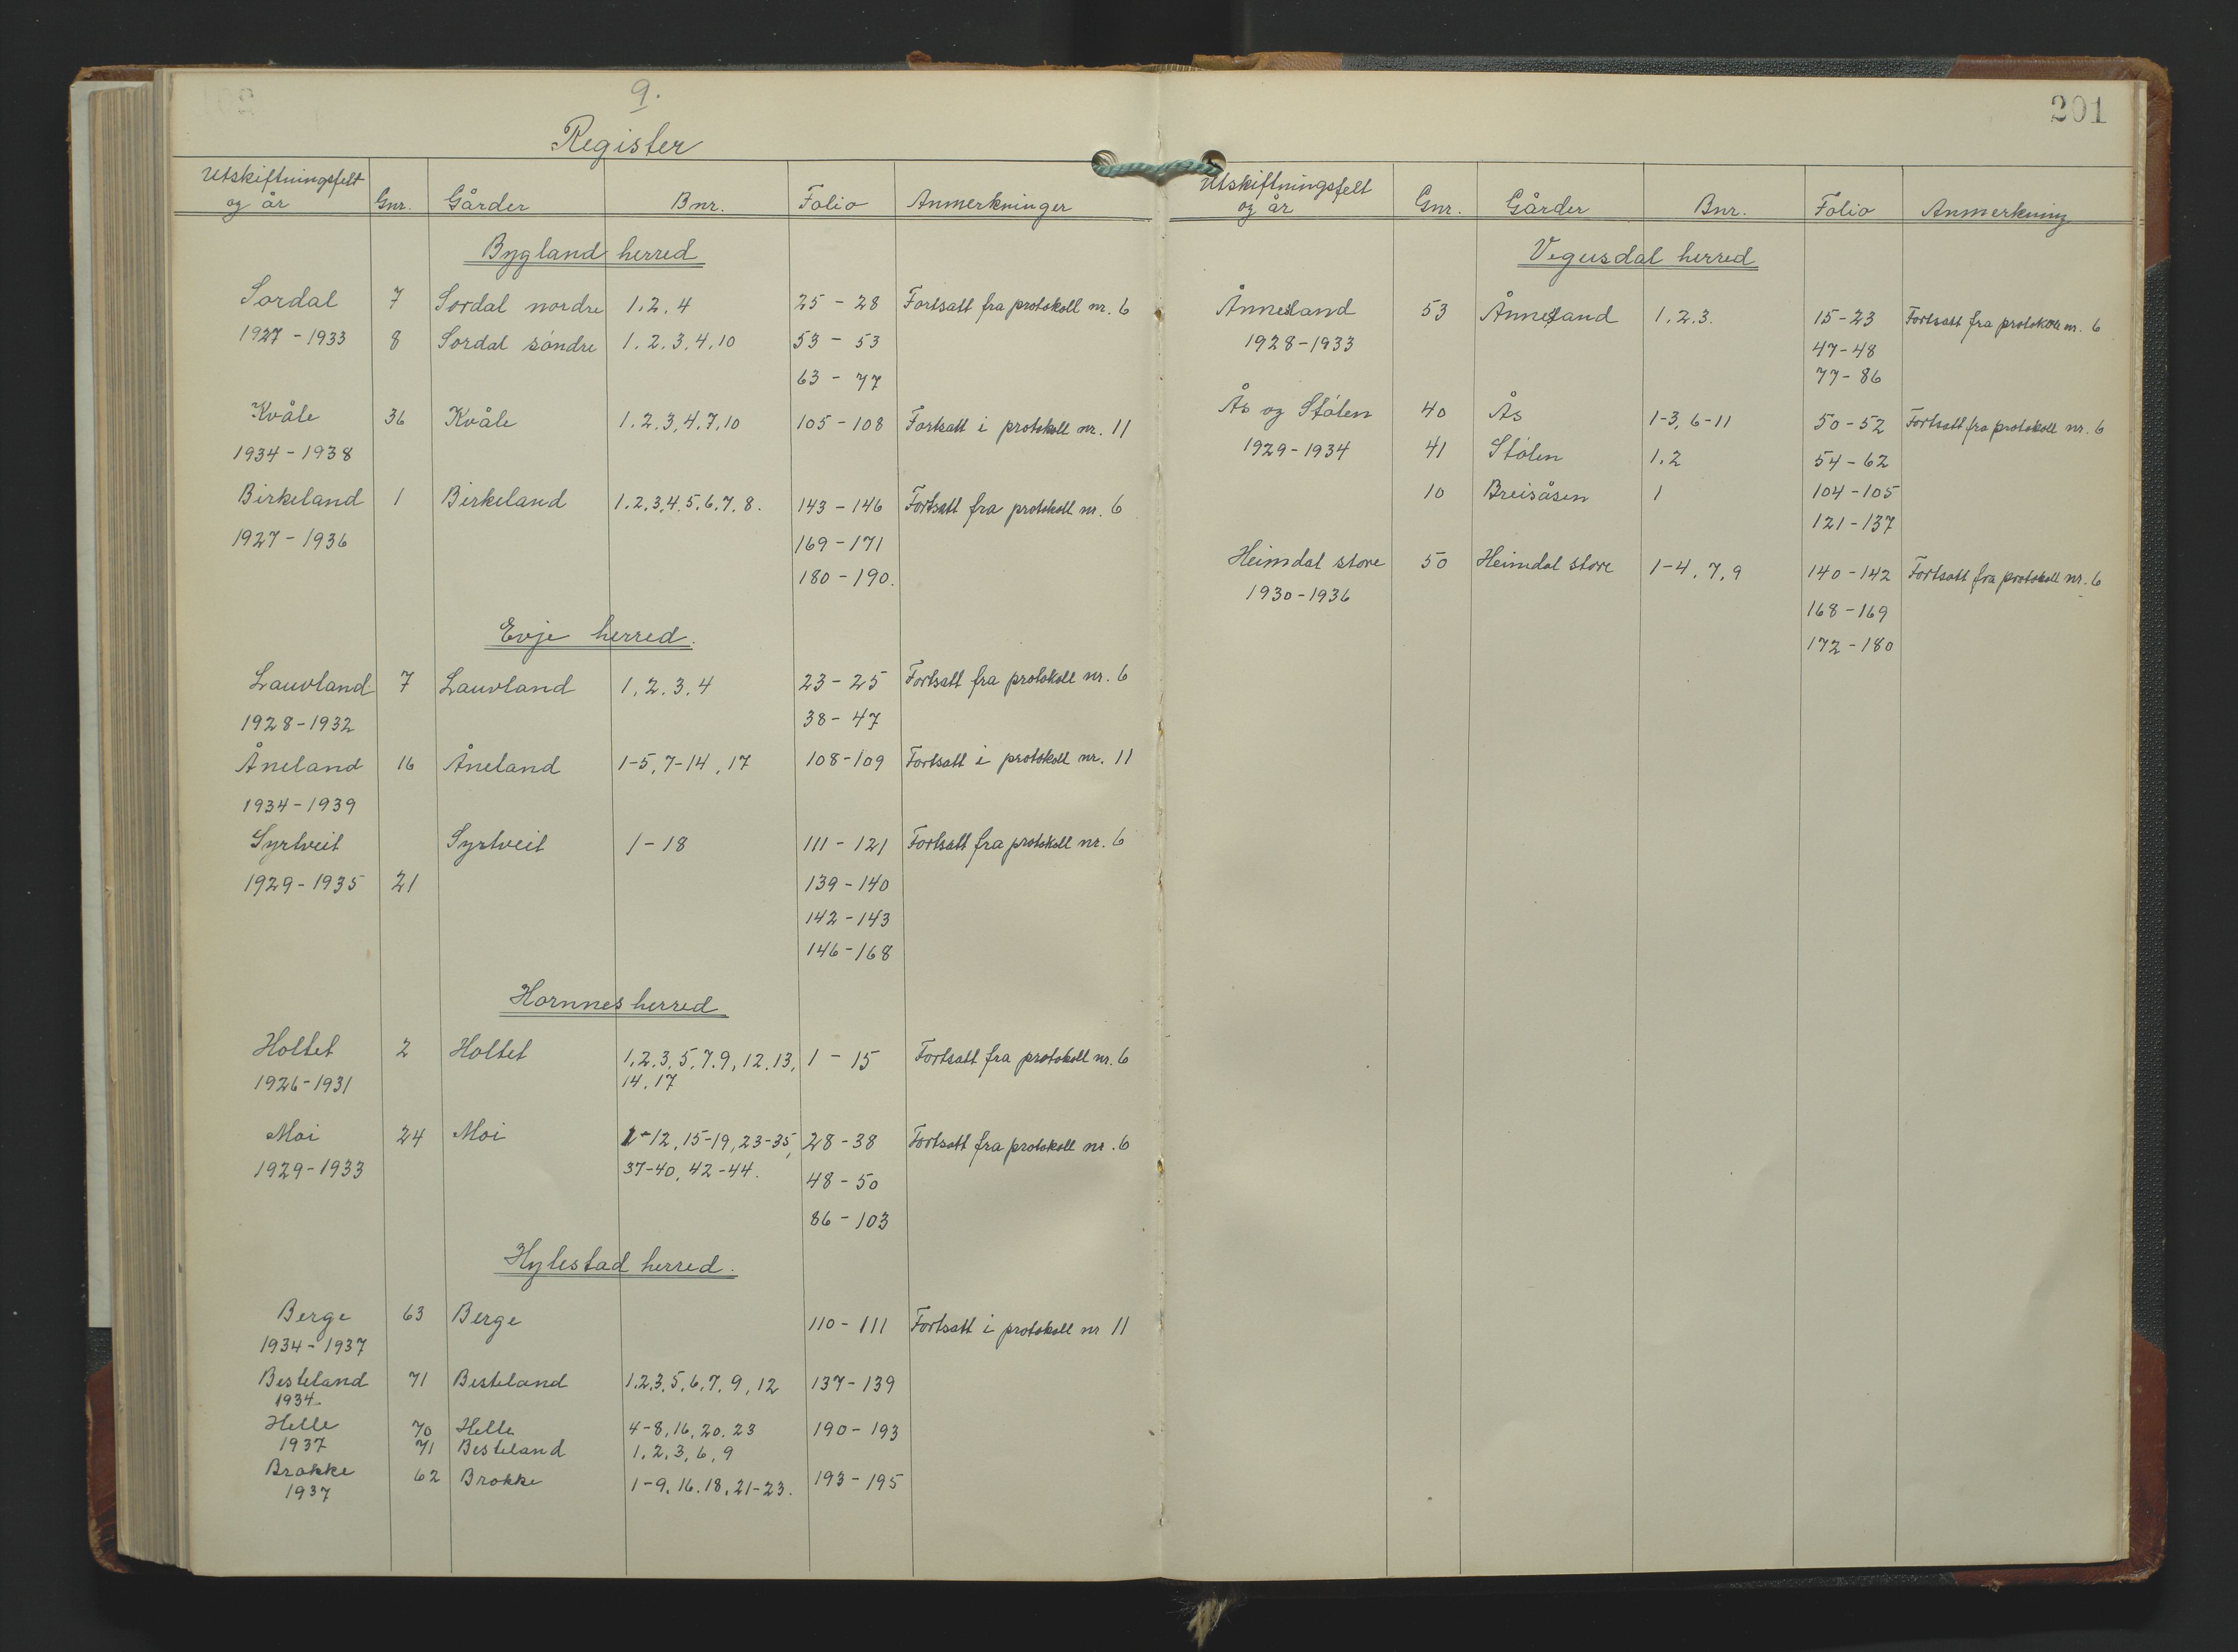 9.
Register
Utskiftningsfelt og år Gnr. Gårder Bnr. Folio Anmerkninger
Bygland herred
Sordal 7 Sordal nordre 1.2.4 25 - 28 Fortsatt fra protokoll nr. 6
1927 - 1933 8 Sordal søndre 1.2.3.4.10 53 - 53
63 - 77
Kvåle 36 Kvåle 1.2.3.4.7.10 105 - 108 Fortsatt i protokoll nr. 11
1934 - 1938
Birkeland 1 Birkeland 1.2.3.4.5.6.7.8. 143 - 146 Fortsatt fra protokoll nr. 6
1927 - 1936 169 - 171
180 - 190.
Evje herred.
Lauvland 7 Lauvland 1.2.3.4 23 - 25 Fortsatt fra protokoll nr. 6
1928 - 1932 38 - 47
Åneland 16 Åneland 1-5, 7-14, 17 108-109 Fortsatt i protokoll nr. 11
1934 - 1939
Syrtveit Syrtveit 1 - 18 111 - 121 Fortsatt fra protokoll nr. 6
1929 - 1935 21 139 - 140
142 - 143
146 - 168
Hornnes herred
Holtet 2 Holtet 1,2,3,5,7,9,12,13, 1 - 15 Fortsatt fra protokoll nr. 6
1926-1931 14.17
Moi 24 Moi 1-12, 15-19, 23-35, 28 - 38 Fortsatt fra protokoll nr. 6
1929 - 1933 37-40, 42-44. 48 - 50
86 - 103
Hylestad herred.
Berge 63 Berge 110 - 111 Fortsatt i protokoll nr 11
1934 - 1937
Besteland 71 Besteland 1.2.3.5.6.7.9,12 137 - 139
1934.
Helle 70 Helle 4-8,16,20,23 190 - 193
1937 71 Besteland 1.2.3,6,9
Brokke 62 Brokke 1-9.16.18.21-23. 193 - 195
1937
201
Utskiftningsfelt og år Gnr. Gårder Bnr. Folio Anmerkning
Vegusdal herred
Ånneland 53 Ånneland 1.2.3. 15-23 Fortsatt fra protokoll nr. 6
1928-1933 47-48
77-86
Ås og Stølen 40 Ås 1-3, 6-11 50-52 Fortsatt fra protokoll nr. 6
1929-1934 41 Stølen 1.2 54-62
10 Breisåsen 1 104-105
121-137
Heimdal store 50 Heimdal store 1-4, 7, 9 140-142 Fortsatt fra protokoll nr. 6
1930-1936 168-169
172-180